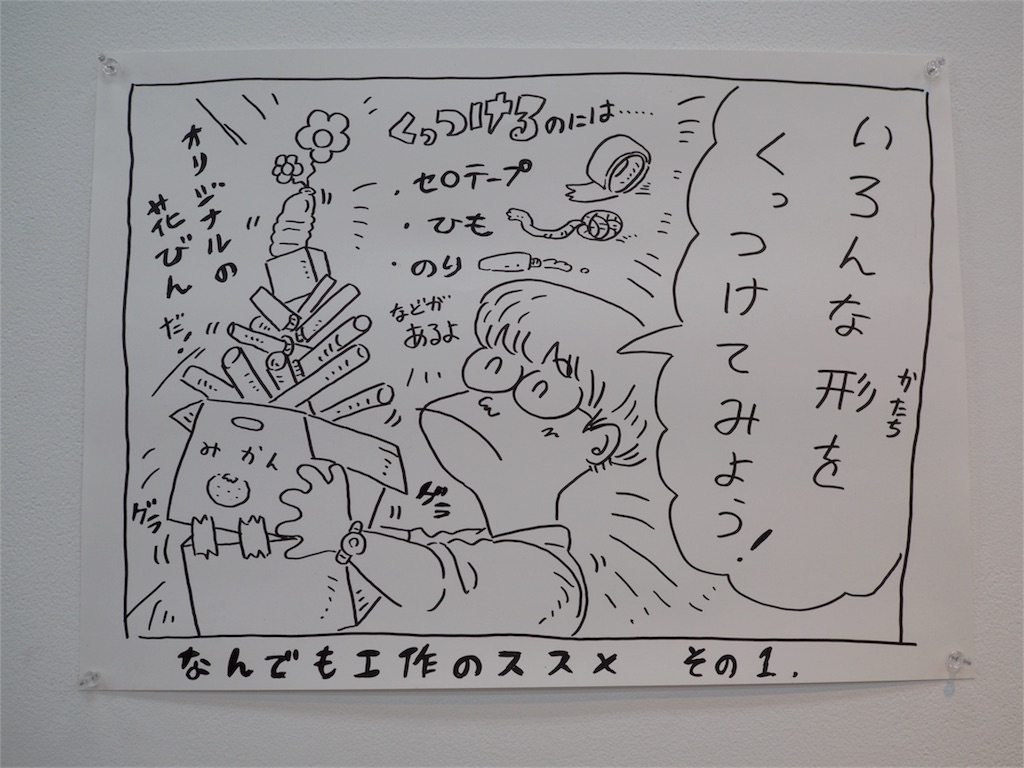 いろんな形を
かたち
くっつけてみよう!
くっつけるのには……
・セロテープ
・ひも
・のり
などが
あるよ
オリジナルの
花びんだ!
みかん
グラ
グラ
なんでも工作のススメ その1.